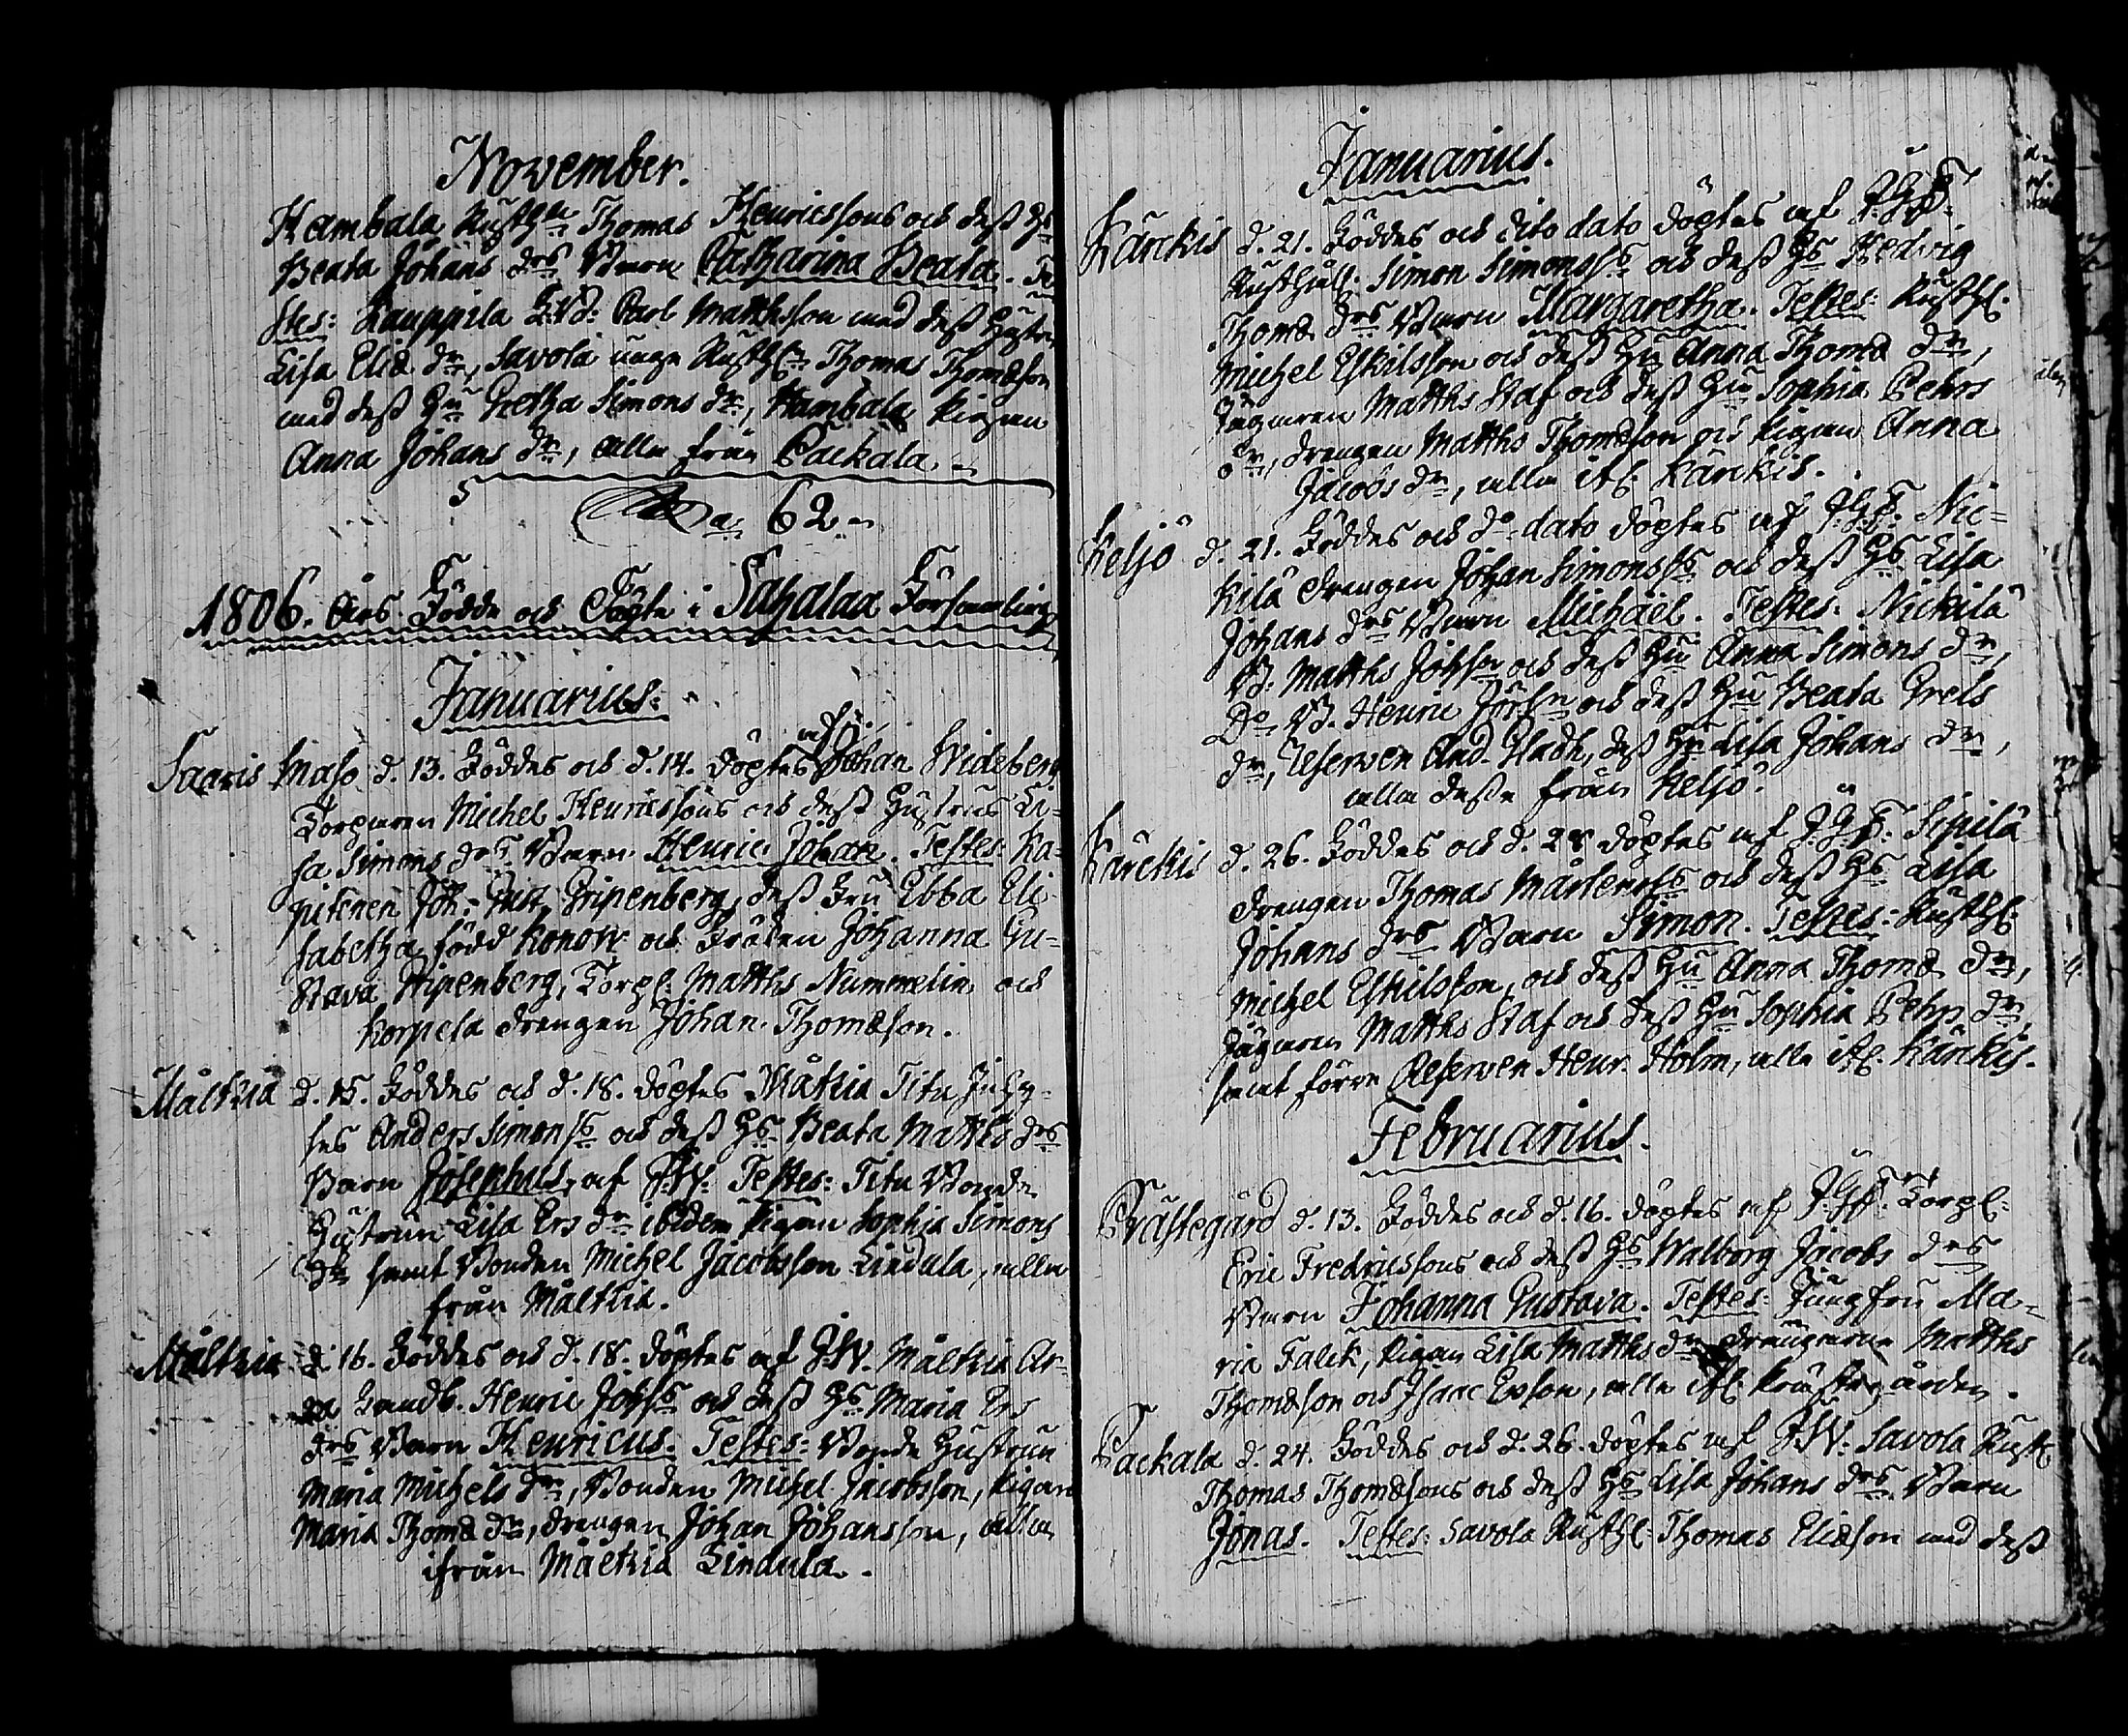 November.
Kambala Rusth:n Thomas Henricssons och dess Hs
Beata Johans drs Barn Catharina Beata. Te
stes: Kauppila Carl Matthsson med dess Hustru
Lisa Eliæ dr, Savola unge Rusth: Thomas Thomæson
med dess Hu Gretha Simons dr, Kambala pigan
Anna Johans dr, alla från Packala.
62
1806. Års Födde och Döpte i Sahalax Församling
Januarius:
Saaris Maso d. 13. Föddes och d. 14. döptes af Johan Wideberg
Torparen Michel Henricssons och dess Hustrus Li-
sa Simons drs Barn Henric Johan. Testes: Ka-
pitenen Joh. Gust. Gripenberg, dess Fru Ebba Eli-
sabetha född Konow och Fröken Johanna Gu-
stava Gripenberg, Torp: Matths Nummelin och
Korpela drengen Johan Thomæson.
Mältkiä d. 15. Föddes och d. 18. döptes Mältkiä Titu Inhy-
ses Anders Simonss och dess Hs Beata Matths drs
Barn Josephus, af J.W. Testes: Titu Bonde
Hustrun Lisa Ers dr ibidem pigan Sophia Simons
dr samt Bonden Michel Jacobsson Lindula, alla
från Mältkiä.
Mältkiä d. 16. Föddes och d. 18. döptes af J.W. Mältkiä Ar-
Landb. Henric Johss och dess Hs Maria Ers
drs Barn Henricus. Testes: Bonde Hustrun
Maria Michels dr, Bonden Michel Jacobsson, Pigan
Maria Thomæ dr, drengen Johan Johansson, alla
ifrån Mältkiä Lindula.
Januarius.
Kärckis d. 21. Föddes och dito dato döptes af
Rusthåll: Simon Simonss och dess Hs Hedvig
Thomæ drs Barn Margaretha. Testes: Rusth:
Michel Eskilsson och dess Hu Anna Thomæ dr,
Jägaren Matths Staf och dess Hu Sophia Pehrs
dr, drengen Matths Thomæson och pigan Anna
Jacobs dr, alla ifr: Kärckis.
Keljo d. 21. Föddes och do dato döptes af Nic-
kilä drengen Johan Simonss och dess Hs Lisa
Johans drs Barn Michaël. Testes: Nickilä
B: Matths Johsson och dess Hu Anna Simons dr,
Do B. Henric Jörsn och dess Hu Beata Grels
dr, Reserven And. Gladh, dess Hu Lisa Johans dr,
alla desse från Keljo.
Kärckis d. 26. Föddes och d. 28 döptes af Sipilä
drengen Thomas Mårtenss och dess Hs Lisa
Johans drs Barn Simon. Testes: Rusth:
Michel Eskilsson, och dess Hu Anna Thomæ dr,
Jägaren Matths Staf och dess Hu Sophia Pehrs dr,
samt förre Reserven Henr. Holm, alla ifr: Kärckis.
Februarius.
Prästegård d. 13. Föddes och d. 16. döptes af Torp:
Eric Fredricssons och dess Hs Walborg Jacobs drs
Barn Johanna Gustava. Testes: Jungfru Ma-
ria Falck, Pigan Lisa Matths dr drengarne Matths
Thomæson och Isaac Ersson, alla ifr: Prästegården.
Packala d. 24. Föddes och d. 26. döptes af J.W: Savola Rusth:
Thomas Thomæsons och dess Hs Lisa Johans drs Barn
Jonas. Testes: Savola Rusth: Thomas Eliæson med dess